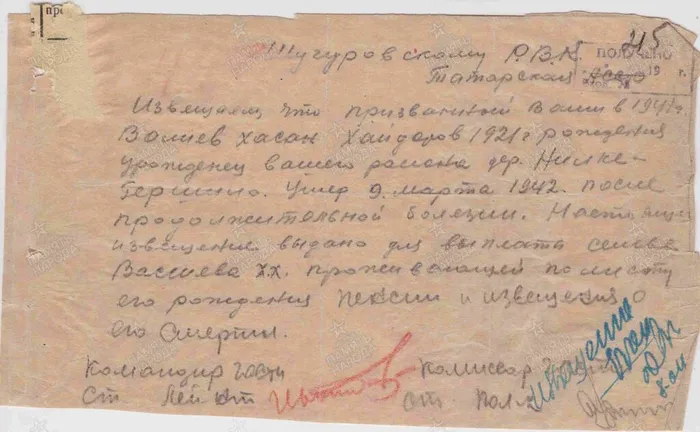 про
215
Шугуровскому Р.В.К.
ПОЛУЧЕНО
Татарской АССР
19 г.
Извещаем что призванный Вами в 1941г
Валиев Хасан Хайдаров 1921г рождения
урожденец вашего района дер. Нилке-
Гершино. Умер 9 марта 1942. после
продолжительной болезни. Настояще
извещение выдано для выплаты семье
Валиева Х.Х. проживающей по месту
его рождения пенсии и извещения о
его смерти.
Командир части
Комиссар
Ст Лей нт
ст. пол